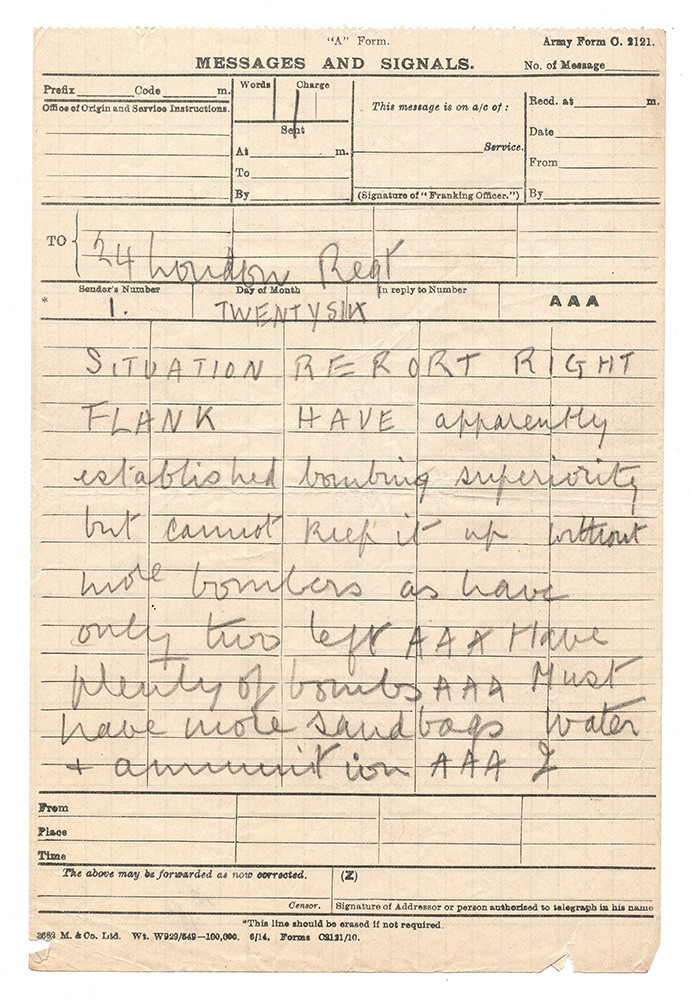 "A" Form.
Army Form C. 2121.
MESSAGES AND SIGNALS.
No. of Message
Prefix Code m.
Words Charge
This message is on a/c of :
Recd. at m.
Office of Origin and Service Instructions.
Sent
Date
At m.
Service.
From
To
By
(Signature of "Franking Officer.")
By
TO
24 London Regt
Sender's Number
Day of Month
In reply to Number
AAA
* 1.
TWENTYSIX
SITUATION REPORT RIGHT
FLANK HAVE apparently
established bombing superiority
but cannot keep it up without
more bombers as have
only two left AAA Have
plenty of bombs AAA Must
have more sandbags water
+ ammunition AAA
From
Place
Time
The above may be forwarded as now corrected.
(Z)
Censor.
Signature of Addressor or person authorised to telegraph in his name
*This line should be erased if not required.
M. & Co. Ltd. Wt. W929/549—100,000. 6/14. Forms C2121/10.